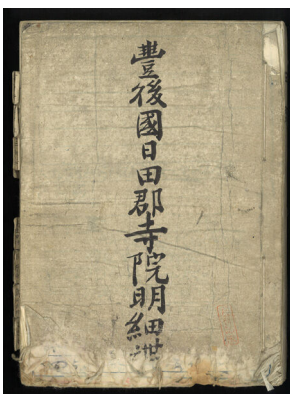 豐後國日田郡寺院明細